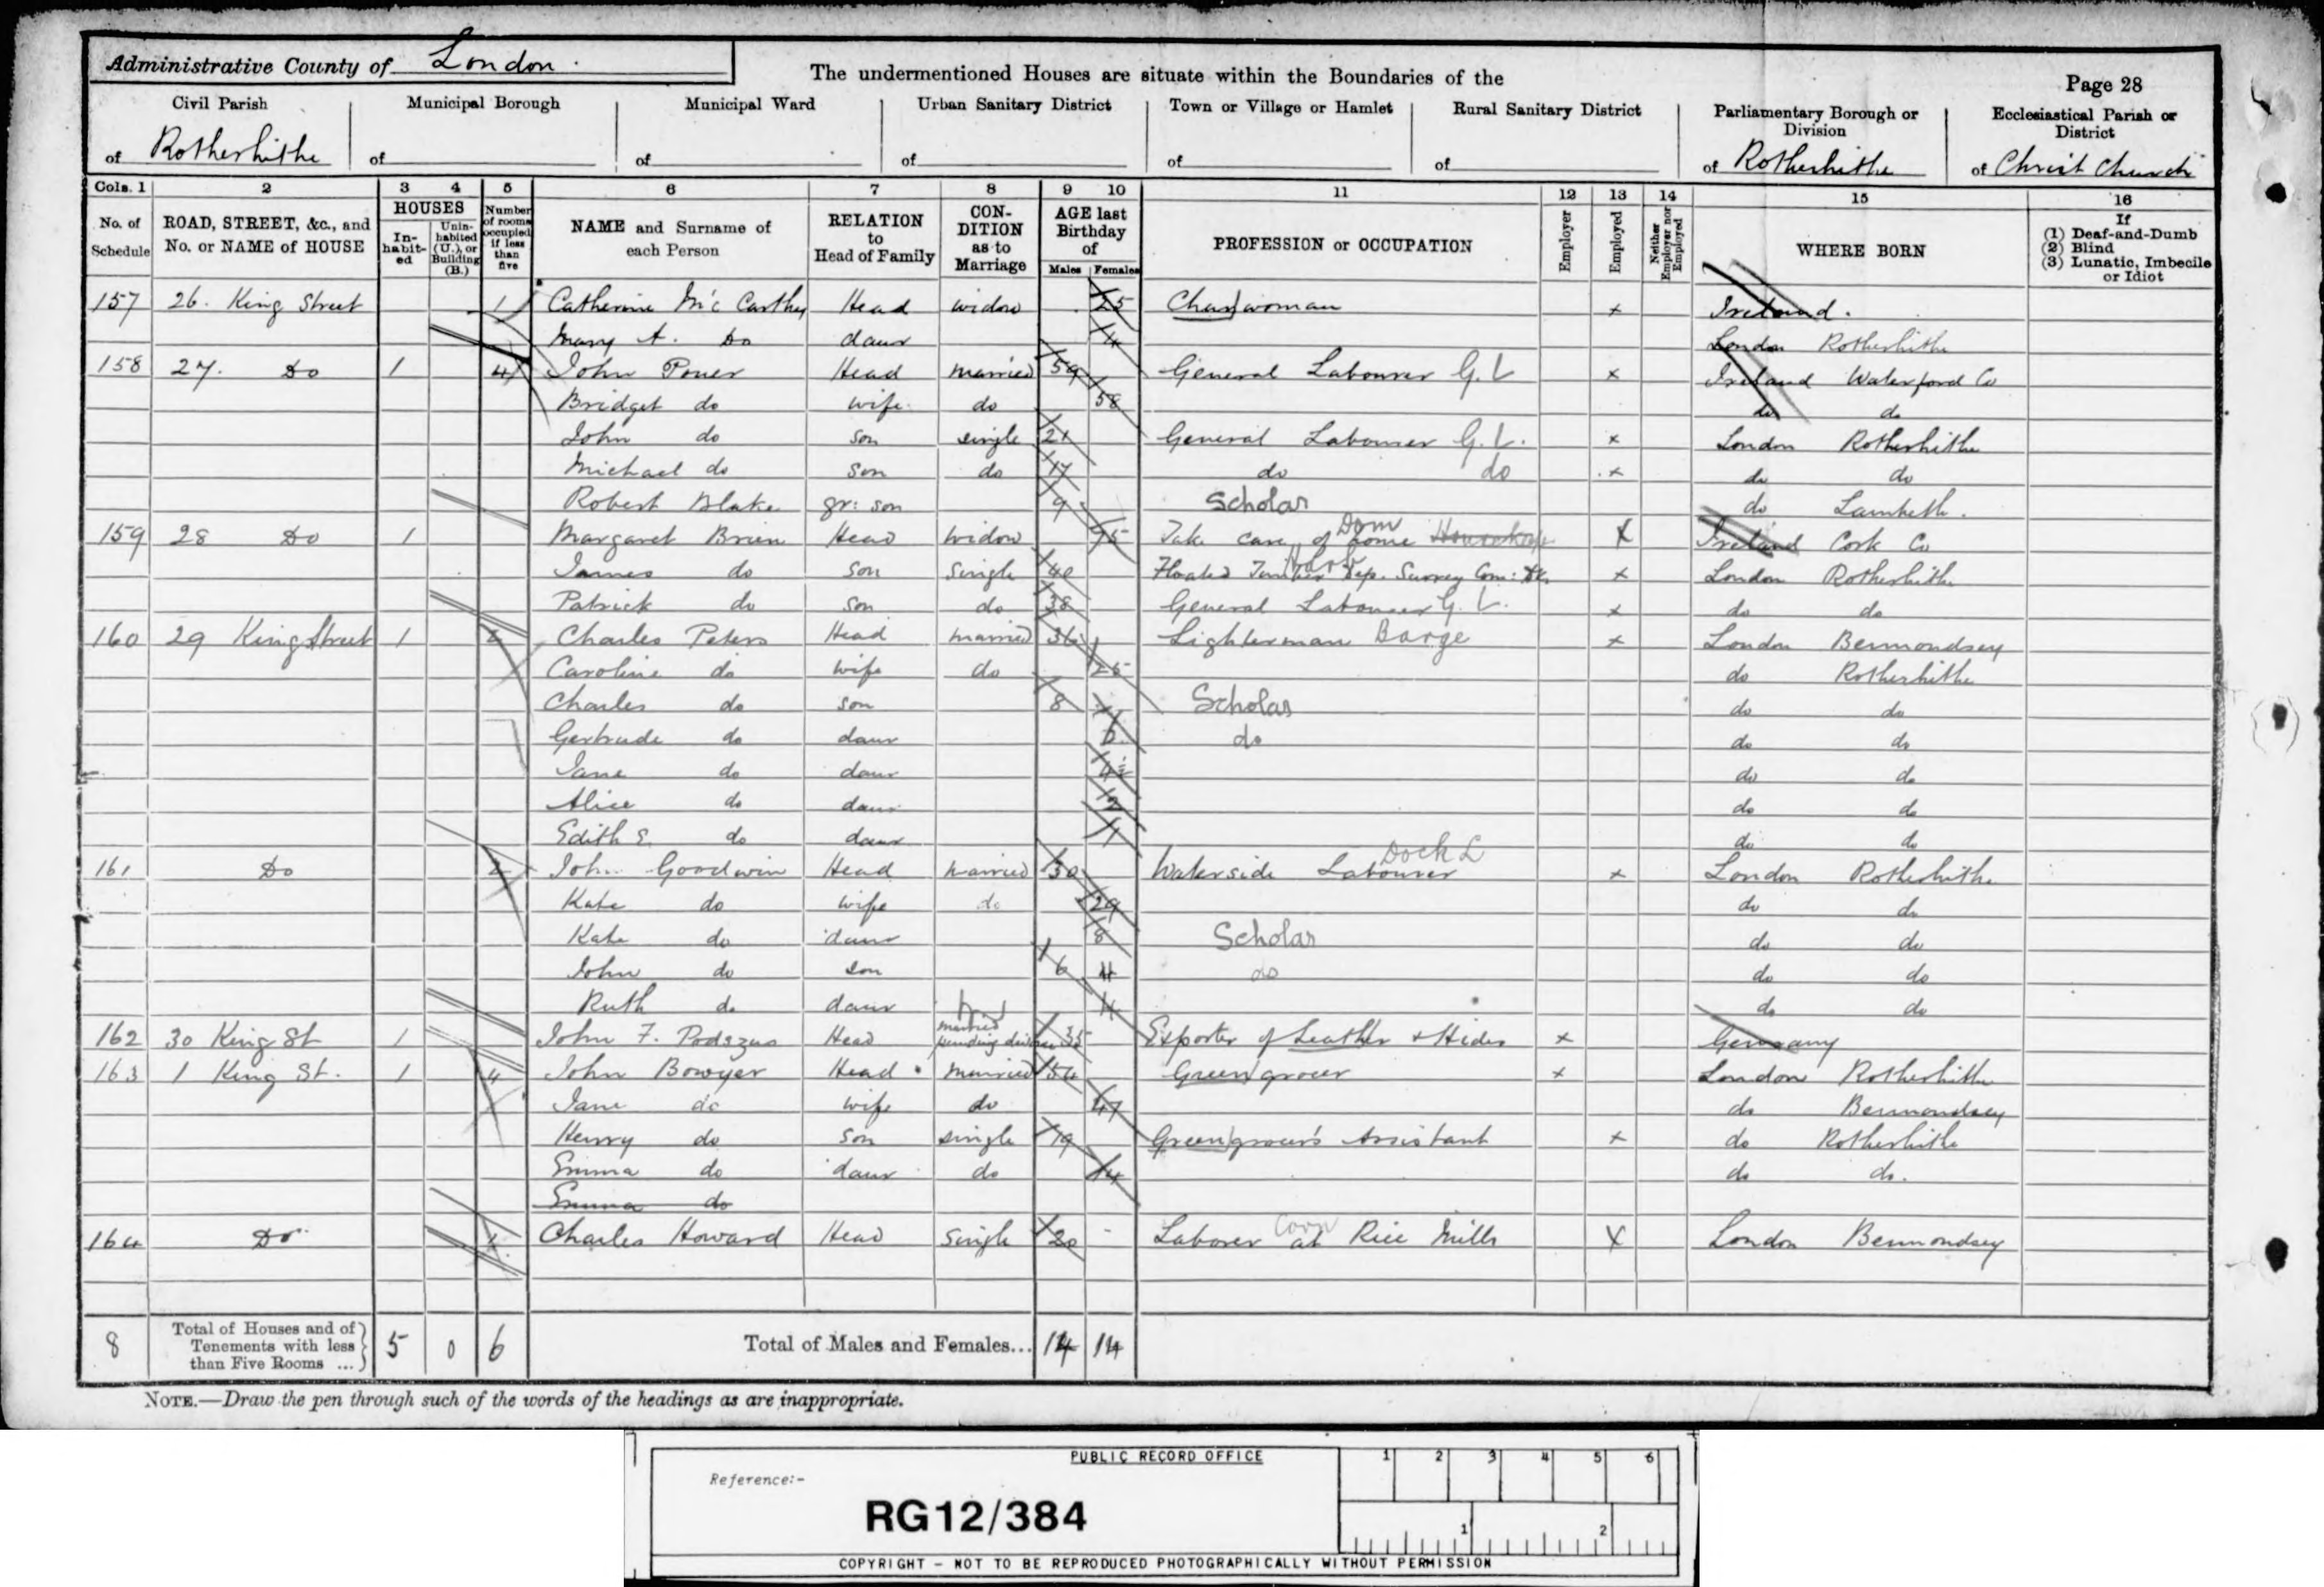 Administrative County of London.
The undermentioned Houses are situate within the Boundaries of the
Page 28
Civil Parish
of Rotherhithe
Municipal Borough
of
Municipal Ward
of
Urban Sanitary District
of
Town or Village or Hamlet
of
Rural Sanitary District
of
Parliamentary Borough or Division
of Rotherhithe
Ecclesiastical Parish or District
of Christ Church
Cols. 1 2 3 4 5 6 7 8 9 10 11 12 13 14 15 16
No. of Schedule
ROAD, STREET, &c., and No. or NAME of HOUSE
HOUSES
In-habit-ed
Unin-habited (U.), or Building (B.)
Number of rooms occupied if less than five
NAME and Surname of each Person
RELATION to Head of Family
CON-DITION as to Marriage
AGE last Birthday of
Males Females
PROFESSION or OCCUPATION
Employer
Employed
Neither Employer nor Employed
WHERE BORN
If
(1) Deaf-and-Dumb
(2) Blind
(3) Lunatic, Imbecile or Idiot
157 26. King Street 1 Catherine Mc Carthy Head widow 25 Charwoman x Ireland.
Mary A. Do daur 4 London Rotherhithe
158 27. Do 1 4 John Power Head married 59 General Labourer G.L x Ireland Waterford Co
Bridget do wife do 58 do do
John do son single 21 General Labourer G.L. x London Rotherhithe
Michael do son do 17 do do x do do
Robert Blake gr: son 9 Scholar do Lambeth.
159 28 Do 1 Margaret Brien Head widow 75 Take care of home Dom x Ireland Cork Co
James do son single 40 Floated Timber Dep. Surrey Com: Dk. x London Rotherhithe
Patrick do son do 38 General Labourer G.L. x do do
160 29 King Street 1 Charles Peters Head married 36 Lighterman Barge x London Bermondsey
Caroline do wife do 25 do Rotherhithe
Charles do son 8 Scholar do do
Gertrude do daur 6 do do do
Jane do daur do do
Alice do daur 2 do do
Edith E. do daur 1 do do
161 Do 2 John Goodwin Head married 30 Waterside Labourer Dock L x London Rotherhithe
Kate do wife do 29 do do
Kate do daur 8 Scholar do do
John do son 6 do do do
Ruth do daur 4 do do
162 30 King St 1 John F. Podszus Head married pending divorce 35 Exporter of Leather + Hides x Germany
163 1 King St. 1 4 John Bowyer Head married 54 Greengrocer x London Rotherhithe
Jane do wife do 47 do Bermondsey
Henry do son single 19 Greengrocer's Assistant x do Rotherhithe
Emma do daur do 14 do do.
Emma do
164 Do 1 Charles Howard Head Single 20 Laborer at Rice Mills Corn x London Bermondsey
8 Total of Houses and of Tenements with less than Five Rooms ... 5 0 6 Total of Males and Females... 14 14
NOTE.—Draw the pen through such of the words of the headings as are inappropriate.
PUBLIC RECORD OFFICE
Reference:-
RG12/384
1 2 3 4 5 6
1 2
COPYRIGHT - NOT TO BE REPRODUCED PHOTOGRAPHICALLY WITHOUT PERMISSION